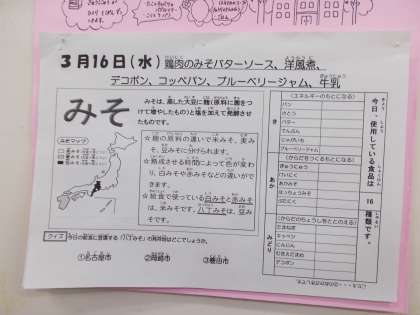 3月16日(水) 鶏肉のみそバターソース、洋風煮、
デコポン、コッペパン、ブルーベリージャム、牛乳
みそ
みそは、蒸した大豆に麹(原料に菌をつ
けて増やしたもの)と塩を加えて発酵させ
たものです。
みそマップ
☆麹の原料の違いで米みそ、麦み
そ、豆みそに分けられます。
☆熟成させる時間によって色が変わ
り、白みそや赤みそなどの違いがで
きます。
☆給食で使っている白みそと赤みそ
は、米みそです。八丁みそは、豆み
そです。
クイズ 今日の給食に登場する「八丁みそ」の発祥地はどこでしょうか。
①名古屋市 ②岡崎市 ③豊田市
今日、使用している食品は 16 種類です。
き
(エネルギーのもとになる)
パン
さとう
バター
でんぷん
じゃがいも
ブルーベリージャム
あか
(からだをつくるもとになる)
ぎゅうにゅう
けいにく
あかみそ
はっちょうみそ
みどり
(からだのちょうしをととのえる)
たまねぎ
キャベツ
にんじん
むきえだまめ
デコポン